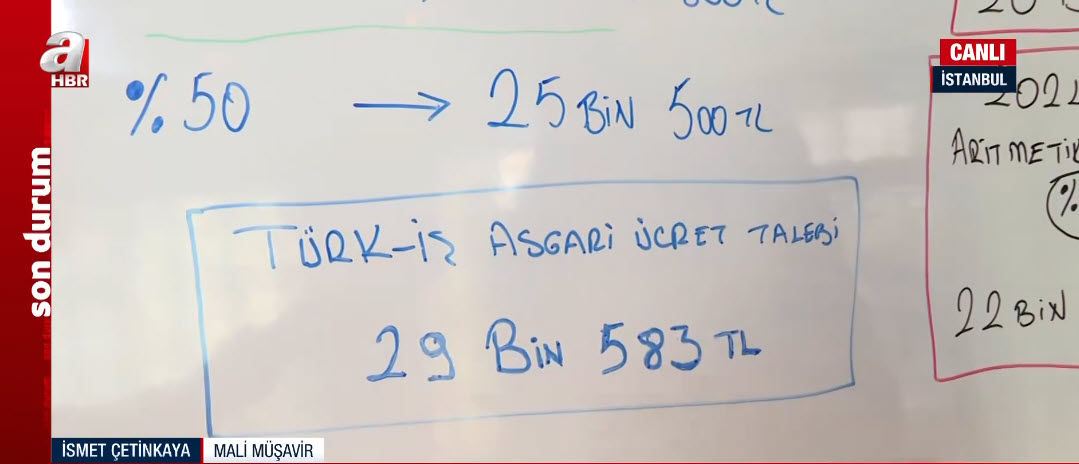 a
HBR
son durum
CANLI
İSTANBUL
%50 → 25 BİN 500 TL
TÜRK-İŞ ASGARİ ÜCRET TALEBİ
29 BİN 583 TL
ARİTMETİK
%
22 BİN
İSMET ÇETİNKAYA
MALİ MÜŞAVİR